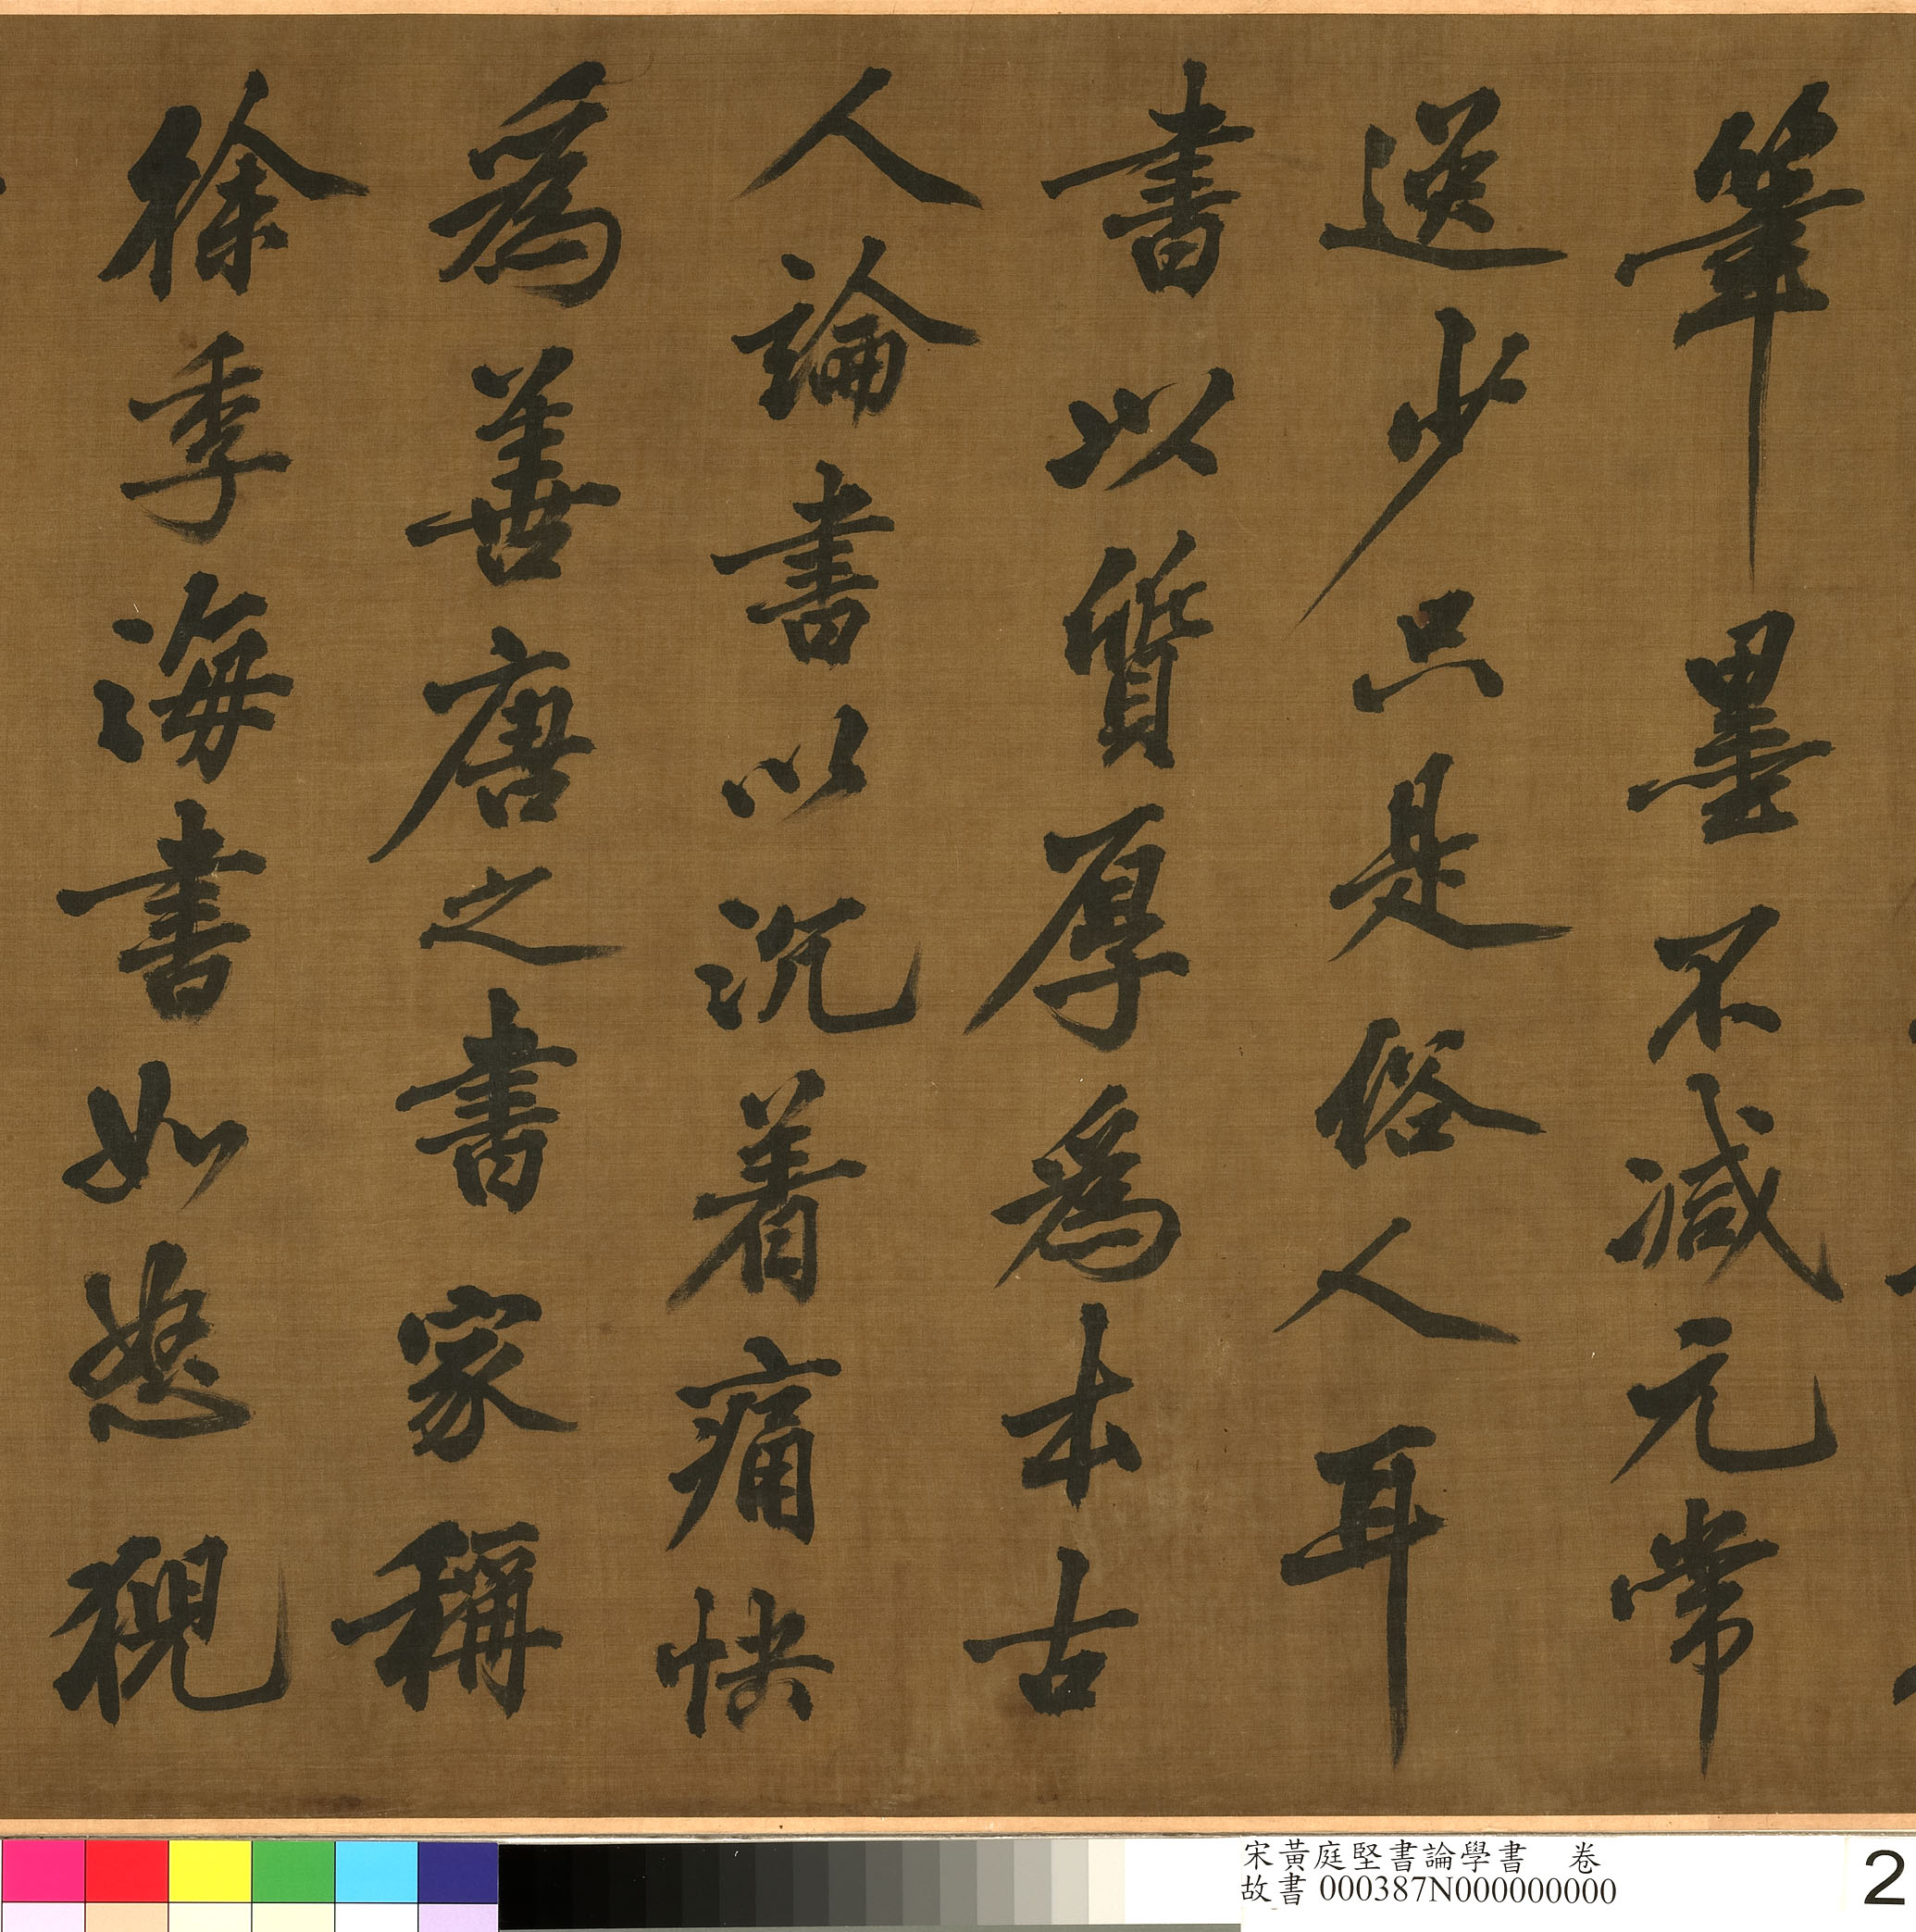 筆墨不減元常
逸少只是俗人耳
書以質厚為本古
人論書以沉着痛快
為善唐之書家稱
徐季海書如怒猊
宋黃庭堅書論學書 卷
故書 000387N000000000
2